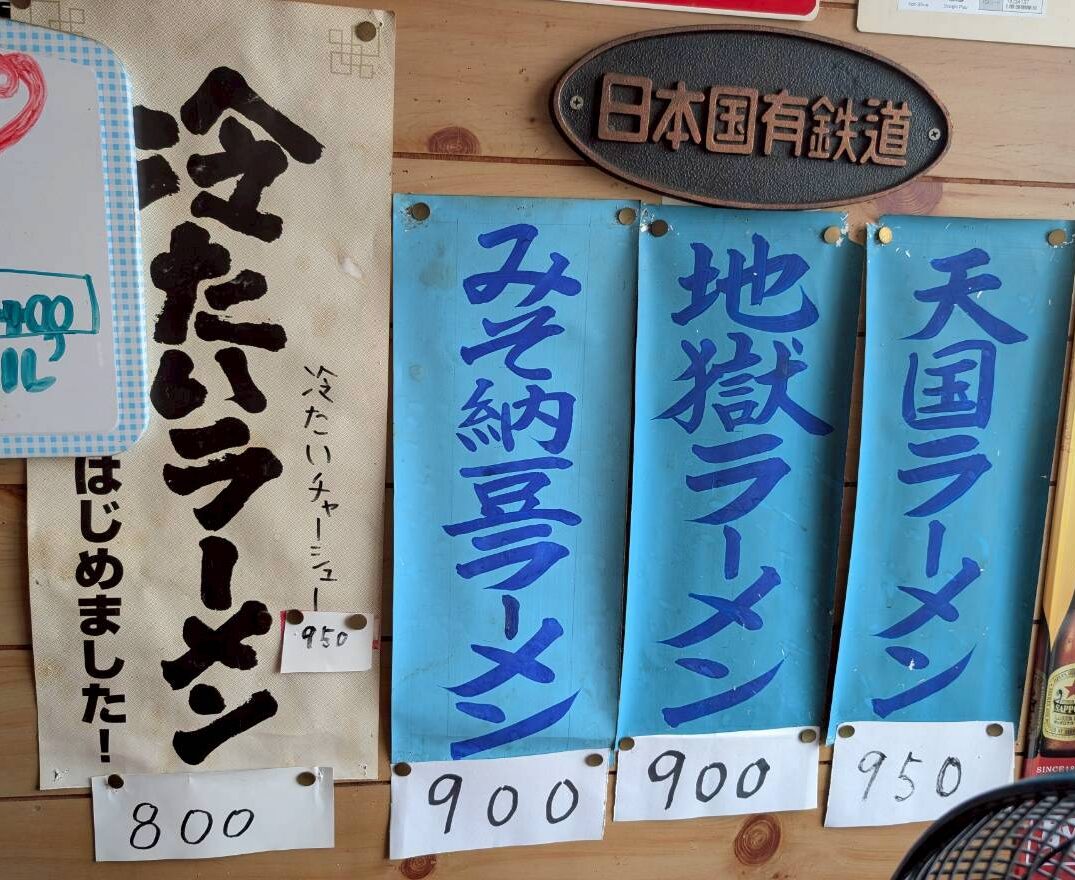 日本国有鉄道
天国ラーメン
950
地獄ラーメン
900
みそ納豆ラーメン
900
冷たいチャーシュー
950
冷たいラーメン
はじめました!
800
SAPPO
SINCE18